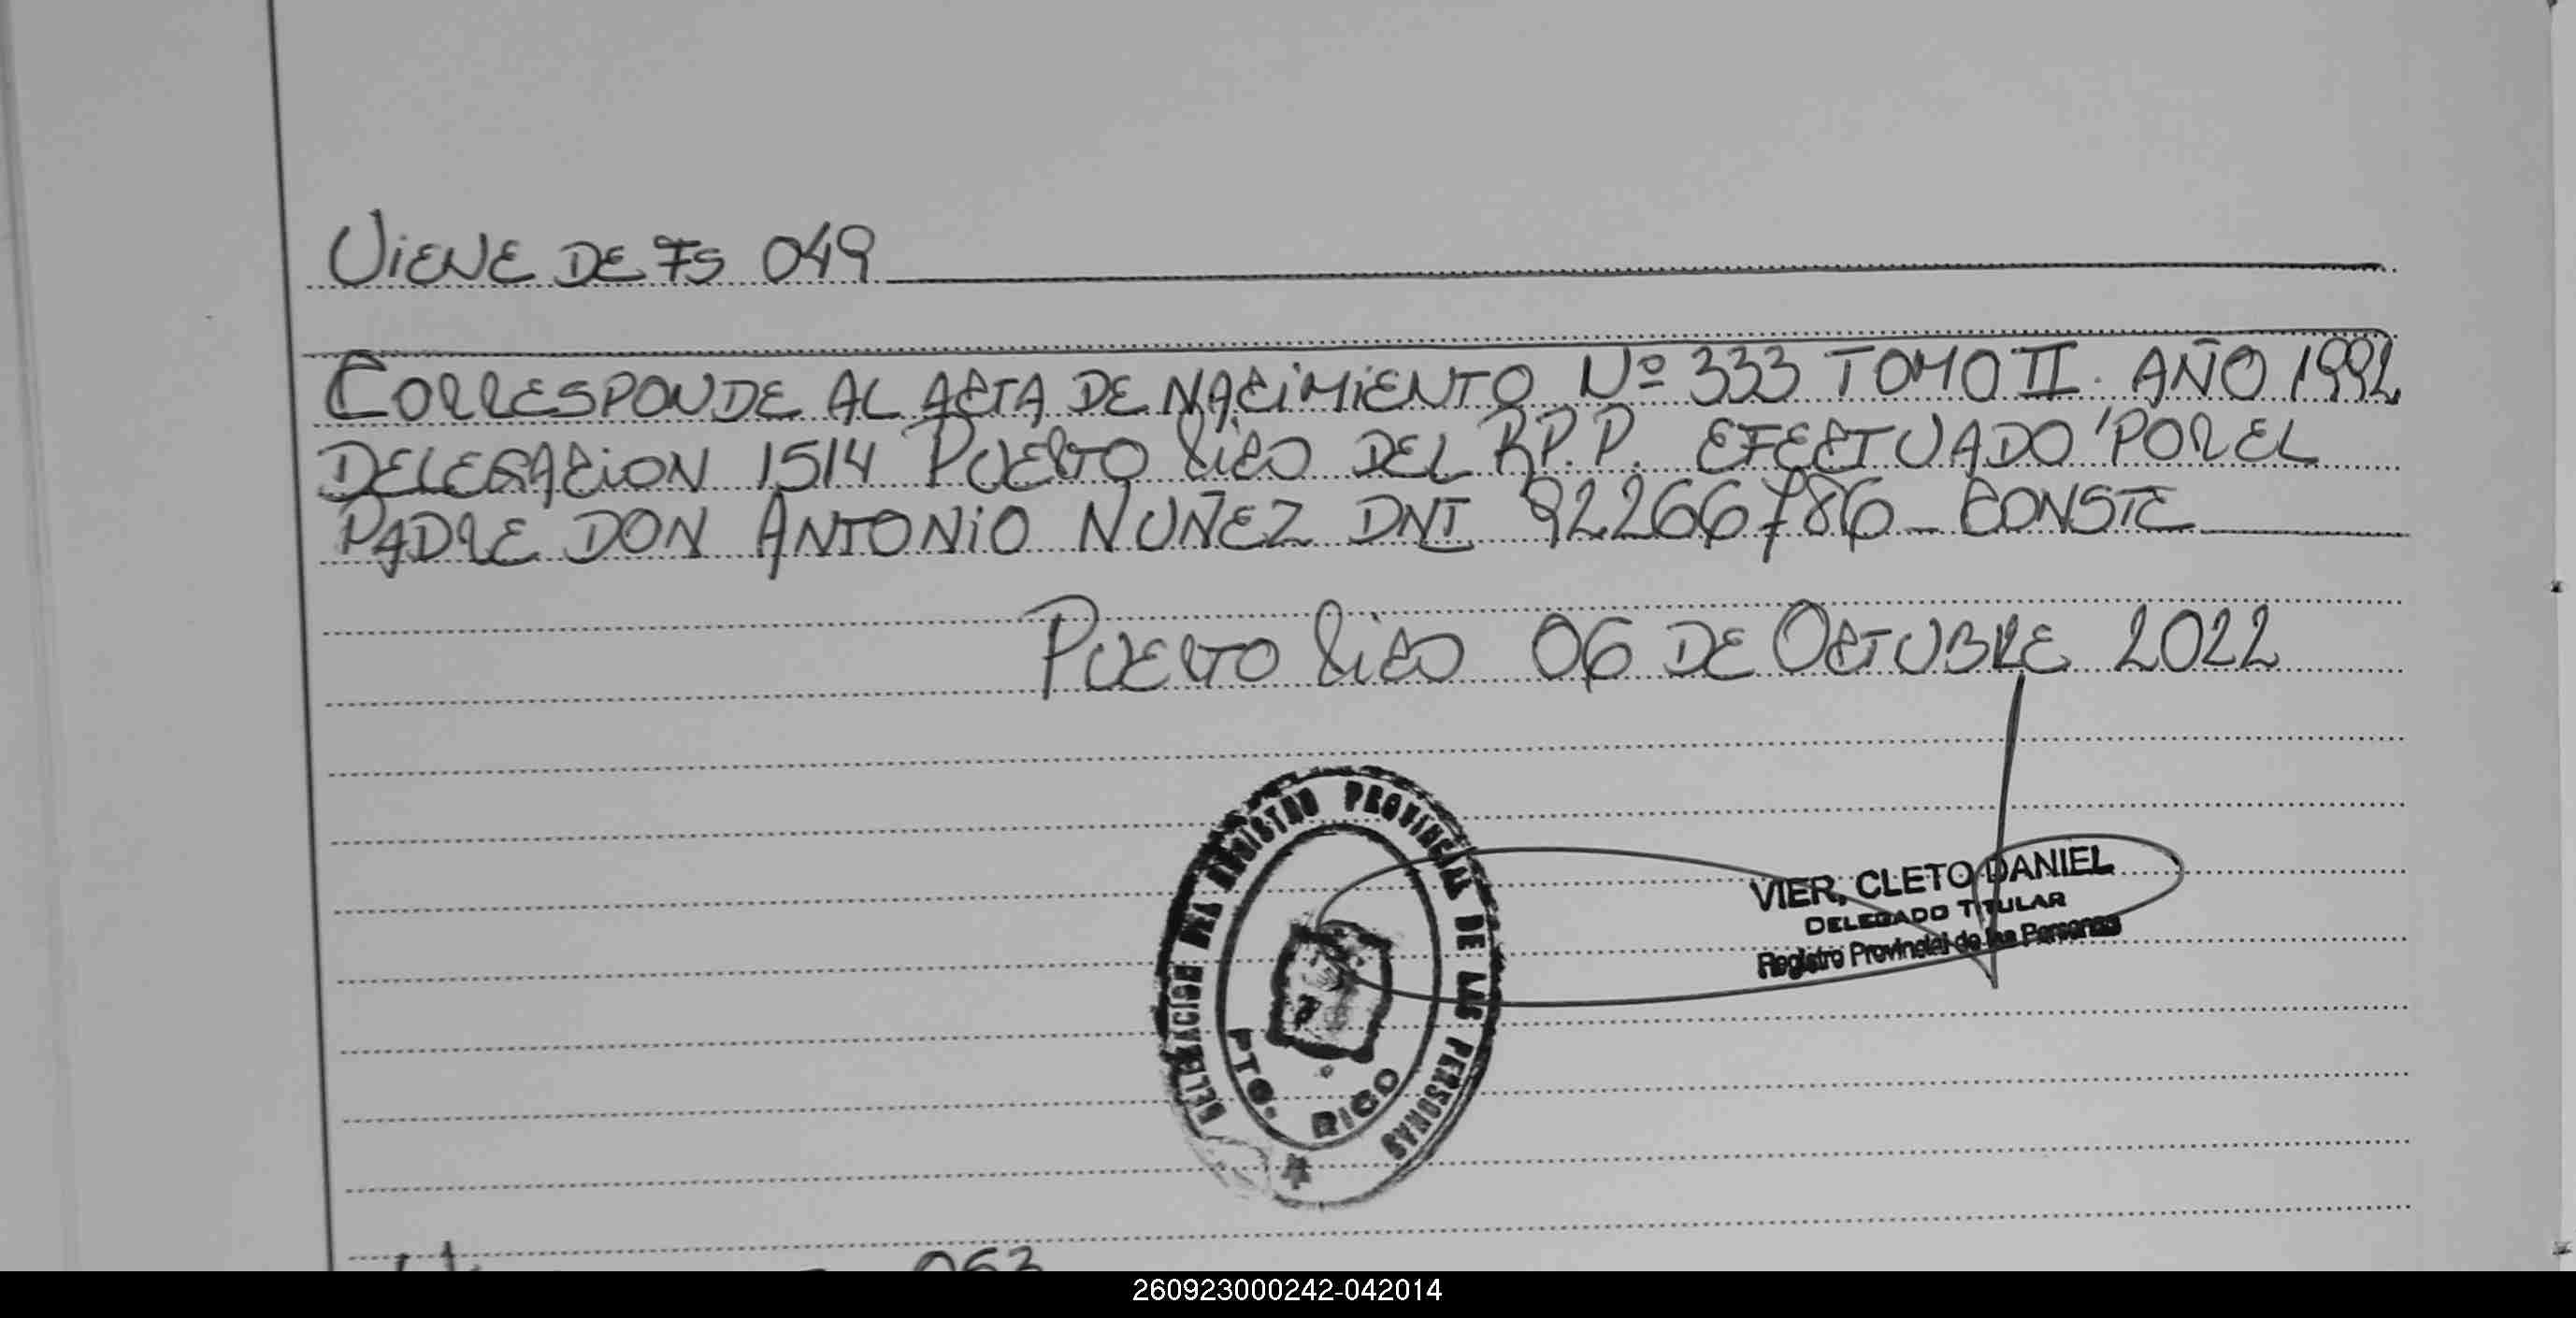 VIENE DE FS 049
CORRESPONDE AL ACTA DE NACIMIENTO Nº 333 TOMO II. AÑO 1992
DELEGACION 1514 PUERTO RICO DEL R.P.P. EFECTUADO POR EL
PADRE DON ANTONIO NUÑEZ DNI 92266786 - CONSTE
PUERTO RICO 06 DE OCTUBRE 2022
DELEGACION DEL REGISTRO PROVINCIAL DE LAS PERSONAS
PTO. RICO
VIER, CLETO DANIEL
DELEGADO TITULAR
Registro Provincial de las Personas
063
260923000242-042014